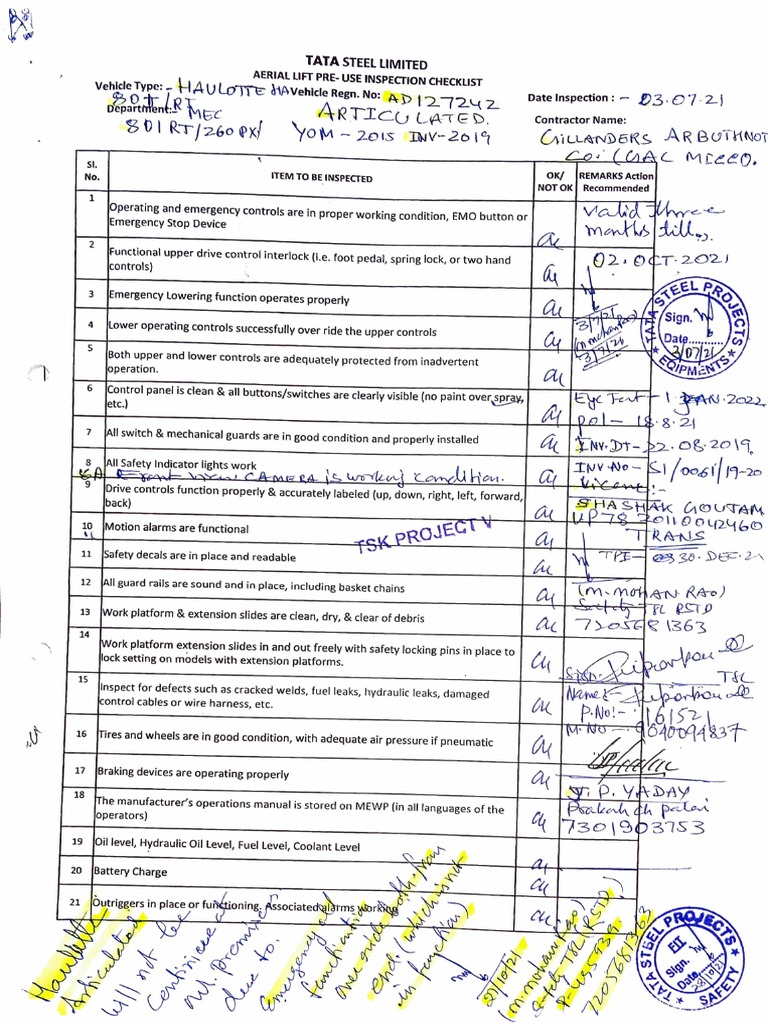 TATA STEEL LIMITED
AERIAL LIFT PRE- USE INSPECTION CHECKLIST
Vehicle Type: - HAULOTTE HA Vehicle Regn. No: AD127242 Date Inspection : - 03.07.21
80IT/RT
Department:- MEC ARTICULATED. Contractor Name:
801RT/260PX/ YOM - 2015 INV-2019 GILLANDERS ARBUTHNOT
Co: (GAC MICCO.
Sl. No. ITEM TO BE INSPECTED OK/ NOT OK REMARKS Action Recommended
1 Operating and emergency controls are in proper working condition, EMO button or Emergency Stop Device OK Valid three months till
2 Functional upper drive control interlock (i.e. foot pedal, spring lock, or two hand controls) OK 02.OCT.2021
3 Emergency Lowering function operates properly OK
4 Lower operating controls successfully over ride the upper controls OK 3/7/21
(M. mohan Rao)
3/7/21
TATA STEEL PROJECTS
Sign.
Date..........
3/07/21
EQIPMENTS
5 Both upper and lower controls are adequately protected from inadvertent operation. OK
6 Control panel is clean & all buttons/switches are clearly visible (no paint over spray, etc.) OK Eye Test - 1 JAN.2022
pol - 18.8.21
7 All switch & mechanical guards are in good condition and properly installed OK INV.DT-22.08.2019.
8 All Safety Indicator lights work INV No - SI/0061/19-20
8A Front view CAMERA is working condition.
9 Drive controls function properly & accurately labeled (up, down, right, left, forward, back) OK SHASHAK GOUTAM
UP78 20110042460
10 Motion alarms are functional OK TRANS
TSK PROJECT V
11 Safety decals are in place and readable OK TPI- 30.DEC.21
12 All guard rails are sound and in place, including basket chains OK (M. MOHAN RAO)
Safety TSL RSTD
13 Work platform & extension slides are clean, dry, & clear of debris OK 7205681363
14 Work platform extension slides in and out freely with safety locking pins in place to lock setting on models with extension platforms. OK
Sign:-
TSL
15 Inspect for defects such as cracked welds, fuel leaks, hydraulic leaks, damaged control cables or wire harness, etc. OK Name:-
P.No:- 161521
M.No - 9040094837
16 Tires and wheels are in good condition, with adequate air pressure if pneumatic OK
17 Braking devices are operating properly OK
V.P. YADAV
18 The manufacturer's operations manual is stored on MEWP (in all languages of the operators) OK Prakash ch palai
7301903753
19 Oil level, Hydraulic Oil Level, Fuel Level, Coolant Level OK
20 Battery Charge OK
21 Outriggers in place or functioning. Associated alarms working OK
Haulotte
Articulated
will not be
continue at
premise
due to.
Emergency
function
over side both from
end. (which is not
in function)
27/10/21
(M. mohan Rao)
Safety TSL (RSTD)
7205681363
TATA STEEL PROJECTS
Sign.
Date.
28/10/21
SAFETY